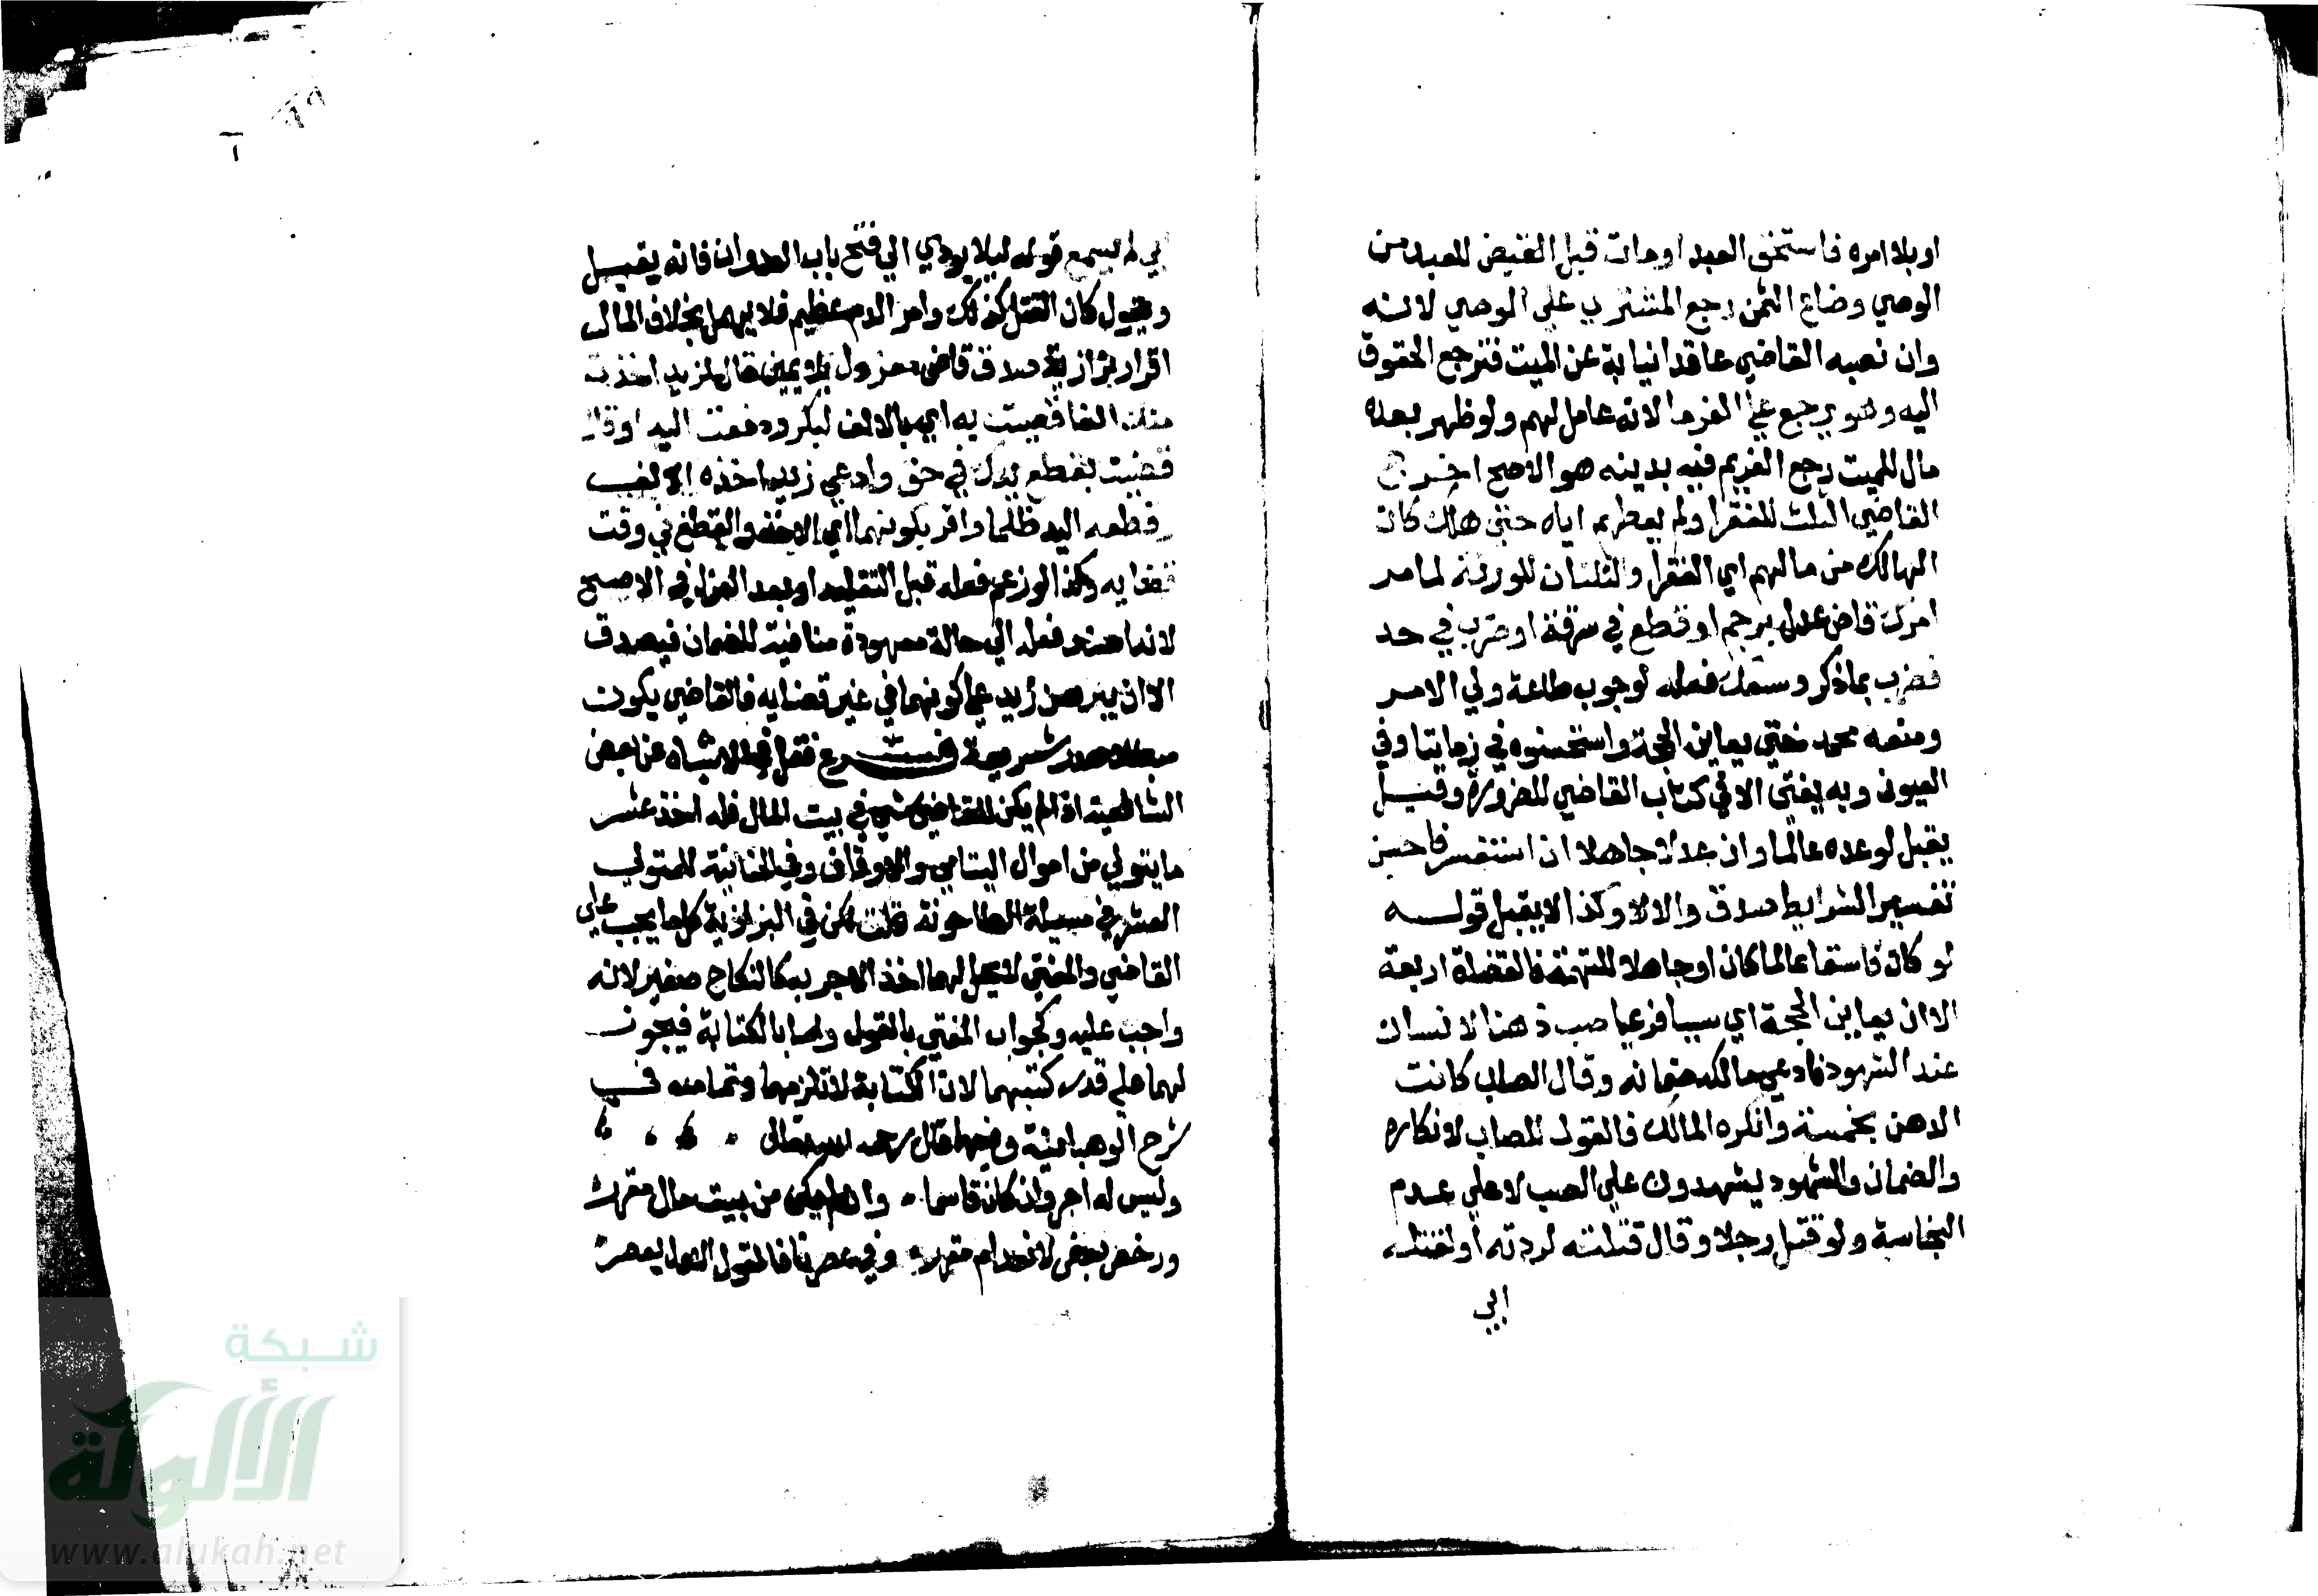 او بلا امره فاستحق العبد او مات قبل القبض للعبد من
الوصي وضاع الثمن رجع المشتري على الوصي لانه
وان نصبه القاضي عاقد نيابة عن الميت فترجع الحقوق
اليه وهو يرجع على الغرما لانه عامل لهم ولو ظهر بعده
مال للميت رجع الغريم فيه بدينه هو الاصح اخرج
القاضي الثلث للفقرا ولم يعطهم اياه حتى هلك كان
الهالك من مالهم اي الفقرا والثلثان للورثة لما مر
امرك قاض عدل برجم او قطع في سرقة او ضرب في حد
قضى به بما ذكر وسعك فعله لوجوب طاعة ولي الامر
ومنعه محمد حتى يعاين الحجة واستحسنوه في زماننا وفي
العيون وبه يفتى الا في كتاب القاضي للضرورة وقيل
يقبل لو عدلا عالما وان عدلا جاهلا ان استفسر فاحسن
تفسير الشرايط صدق والا لا وكذا لا يقبل قوله
لو كان فاسقا عالما كان او جاهلا للتهمة فالقضاة اربعة
الا ان يعاين الحجة اي سببا شرعيا صب دهنا لانسان
عند الشهود فادعى مالكه ضمانه وقال الصاب كانت
الدهن نجسة وانكره المالك فالقول للصاب لانكاره
والضمان والشهود يشهدون على الصب لا على عدم
النجاسة ولو قتل رجلا وقال قتلته لردته او لقتله
ابي
ابي لم يسمع قوله ليلا يودي الى فتح باب العدوان فانه يقتل
ويقول كان القتل كذلك وامر الدم عظيم فلا يهمل بخلاف المال
اقرار بزازية صدق قاض معزول بلا يمين قال لزيد اخذت
منك الفا قضيت به اي بالالف لبكر ودفعت اليه او قال
قضيت بقطع يدك في حق وادعى زيد اخذه الالف
وقطعه اليد ظلما واقر بكونهما اي الاخذ والقطع في وقت
قضايه وكذا لو زعم فعله قبل التقليد او بعد العزل في الاصح
لانه اسند فعله الى حالة معهودة منافية للضمان فيصدق
الا ان يبرهن زيد على كونهما في غير قضايه فالقاضي يكون
مبطلا صدر شريعة فرع نقل في الاشباه عن بعض
الشافعية اذا لم يكن للقاضي شي في بيت المال فله اخذ عشر
ما يتولى من اموال اليتامى والاوقاف وفي الخانية للمتولي
العشر في مسيلة الطاحونة قلت لكن في البزازية كل ما يجب على
القاضي والمفتي لا يحل لهما اخذ الاجر به كانكاح صغير لانه
واجب عليه وكجواب المفتي بالقول واما بالكتابة فيجوز
لهما على قدر كتبهما لان الكتابة لا تلزمهما وتمامه في
شرح الوهبانية وفيها قال رحمه الله تعالى
وليس له اجر وان كان قاسما وان لم يكن من بيت مال مقرر
ورخص بعض لانعدام مقرر وفي عصرنا فالقول الاول ينصر
شبكة
الألوكة
www.alukah.net